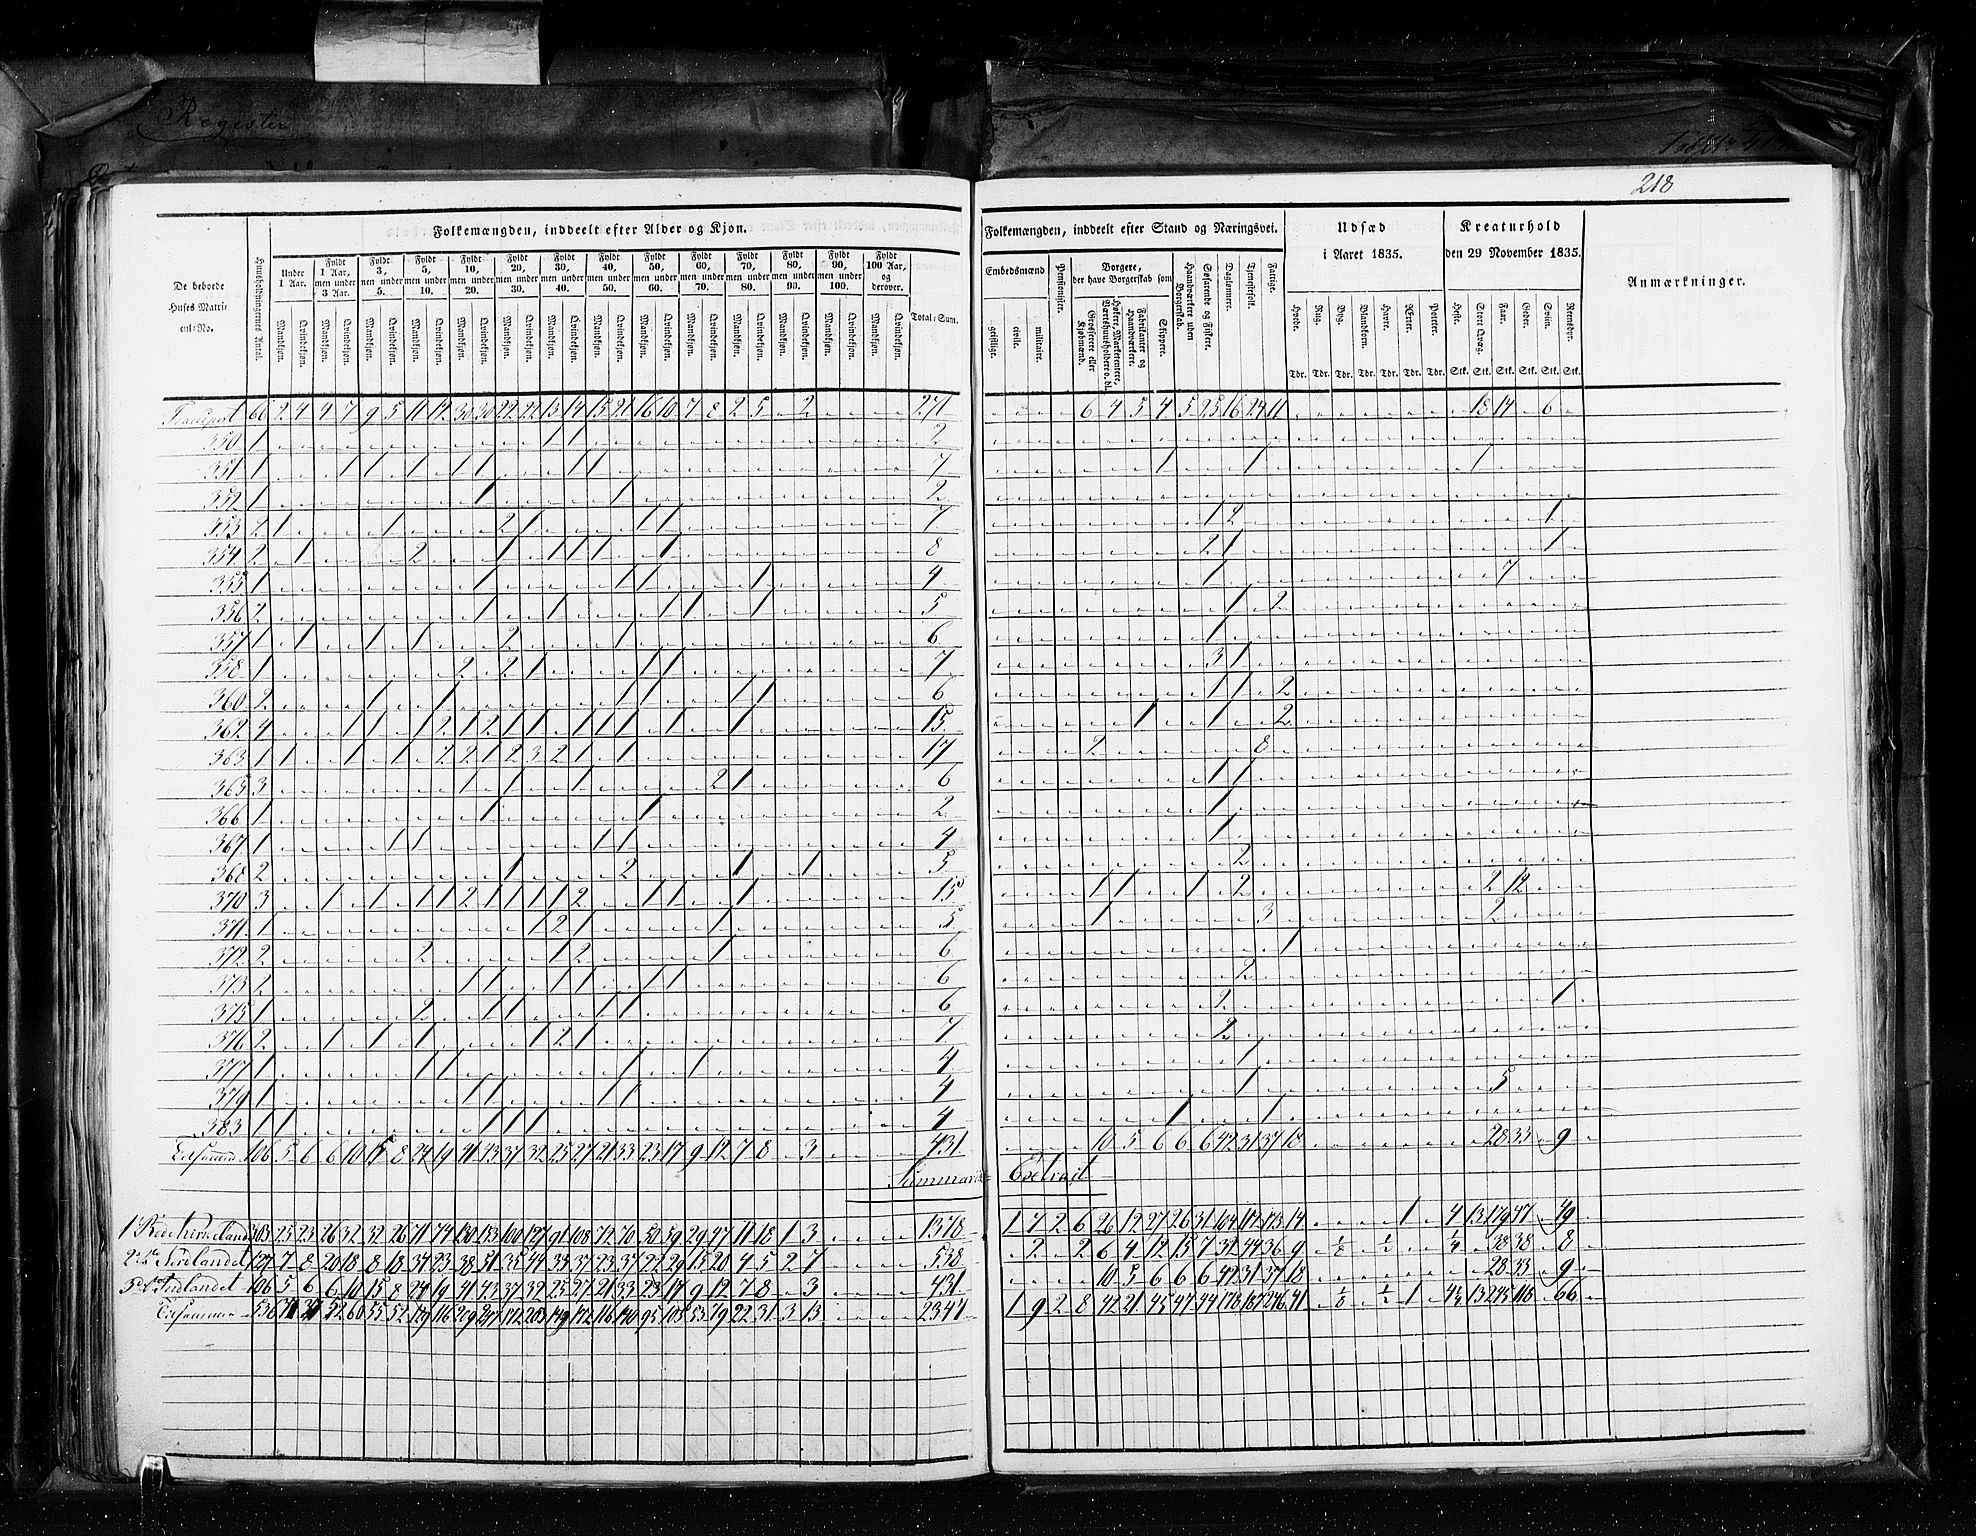 Register
218
Folkemængden, inddeelt efter Alder og Kjøn.
De beboede Huses Matricul-No.
Huusholdningernes Antal.
Under 1 Aar.
Fyldt 1 Aar, men under 3 Aar.
Fyldt 3, men under 5.
Fyldt 5, men under 10.
Fyldt 10, men under 20.
Fyldt 20, men under 30.
Fyldt 30, men under 40.
Fyldt 40, men under 50.
Fyldt 50, men under 60.
Fyldt 60, men under 70.
Fyldt 70, men under 80.
Fyldt 80, men under 90.
Fyldt 90, men under 100.
Fyldt 100 Aar, og derover.
Total-Sum.
Mandkjøn. Qvindekjøn. Mandkjøn. Qvindekjøn. Mandkjøn. Qvindekjøn. Mandkjøn. Qvindekjøn. Mandkjøn. Qvindekjøn. Mandkjøn. Qvindekjøn. Mandkjøn. Qvindekjøn. Mandkjøn. Qvindekjøn. Mandkjøn. Qvindekjøn. Mandkjøn. Qvindekjøn. Mandkjøn. Qvindekjøn. Mandkjøn. Qvindekjøn. Mandkjøn. Qvindekjøn. Mandkjøn. Qvindekjøn.
Folkemængden, inddeelt efter Stand og Næringsvei.
Embedsmænd
geistlige. civile. militaire.
Pensionister.
Borgere, der have Borgerskab som
Grosserere eller Kjøbmænd.
Høkere, Marketentere, Værtshuusholdere o. dl.
Fabrikanter og Haandværkere.
Skippere.
Haandværkere uden Borgerskab.
Søfarende og Fiskere.
Daglønnere.
Tjenestefolk.
Fattige.
Udsæd i Aaret 1835.
Hvede. Rug. Byg. Blandkorn. Havre. Ærter. Poteter.
Tdr. Tdr. Tdr. Tdr. Tdr. Tdr. Tdr.
Kreaturhold den 29 November 1835.
Heste. Stort Qvæg. Faar. Geder. Sviin. Reensdyr.
Stk. Stk. Stk. Stk. Stk. Stk.
Anmærkninger.
Transport 66 2 4 4 7 9 5 11 12 30 30 22 22 13 14 15 21 16 10 7 8 2 5 2 271 6 4 5 4 5 25 16 24 11 18 14 6
350 1 1 1 2
351 1 1 1 1 1 1 1 1 7 1 1 1
352 1 1 1 2
353 2 1 1 2 1 1 1 7 1 2 1
354 2 1 2 1 1 1 1 1 8 2 1 1
355 1 1 1 1 1 4 1 7
356 2 1 1 1 1 1 5 1 2
357 1 1 1 1 2 1 6 1
358 1 2 2 1 1 1 7 3 1
360 2 1 1 1 1 1 1 6 1 1 2
362 4 1 1 1 2 1 2 1 1 1 1 1 1 1 15 1 1 2
363 1 1 1 1 2 2 1 2 3 2 1 1 17 2 8
365 3 1 1 1 2 1 6 1 1
366 1 1 1 2 1
367 1 1 1 1 1 4 1
368 2 1 2 1 1 5 2
370 3 1 1 1 1 2 1 1 1 1 2 1 1 1 15 1 1 1 2 2 12
371 1 1 2 1 1 5 1 3 2
372 2 2 1 2 1 6 1
373 2 1 1 1 1 1 1 6 2
375 1 2 1 1 1 1 6 2 1
376 2 1 1 1 1 2 1 7 2
377 1 1 1 1 1 4 1
379 1 1 1 1 1 4 1 5
383 1 1 1 1 1 4 1 1
Tilsammen 106 5 6 6 10 15 8 24 19 41 43 37 32 25 27 21 33 23 17 9 12 7 8 3 431 10 5 6 6 6 42 31 37 18 28 33 9
Summarisk Extract
303 25 23 26 32 32 26 71 74 130 153 100 127 91 108 72 70 50 59 29 47 11 18 1 3 1378 1 7 2 6 26 12 27 26 31 104 112 173 14 1 4 13 179 47 49
Nordlandet 127 7 8 20 18 8 18 34 23 38 51 35 44 33 37 23 37 22 29 15 20 4 5 2 7 538 2 2 6 4 12 15 7 32 44 36 9 1/8 1/2 1/4 38 38 8
106 5 6 6 10 15 8 24 19 41 43 37 32 25 27 21 33 23 17 9 12 7 8 3 431 10 5 6 6 6 42 31 37 18 28 33 9
Tilsammen 536 52 60 55 52 129 116 209 247 172 203 149 172 116 140 95 105 53 79 22 31 3 13 2347 1 9 2 8 42 21 45 47 44 178 187 246 41 1/8 1/2 1 4 1/4 13 245 118 66